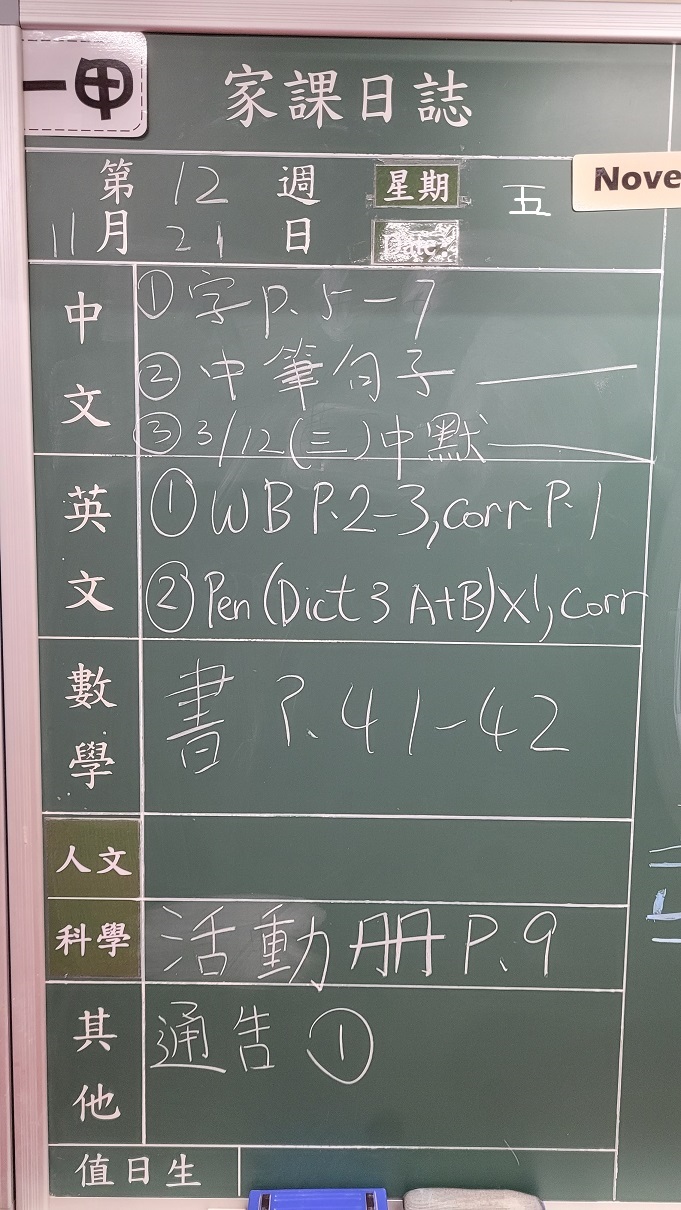 一甲 家課日誌
第 12 週 星期 五
11 月 21 日 Date:
Nove
中文
① 字 P.5-7
② 中筆句子
③ 3/12(三)中默
英文
① WB P.2-3, corr P.1
② Pen (Dict 3 A+B)x1, corr
數學
書 P.41-42
人文
科學
活動冊 P.9
其他
通告 ①
值日生